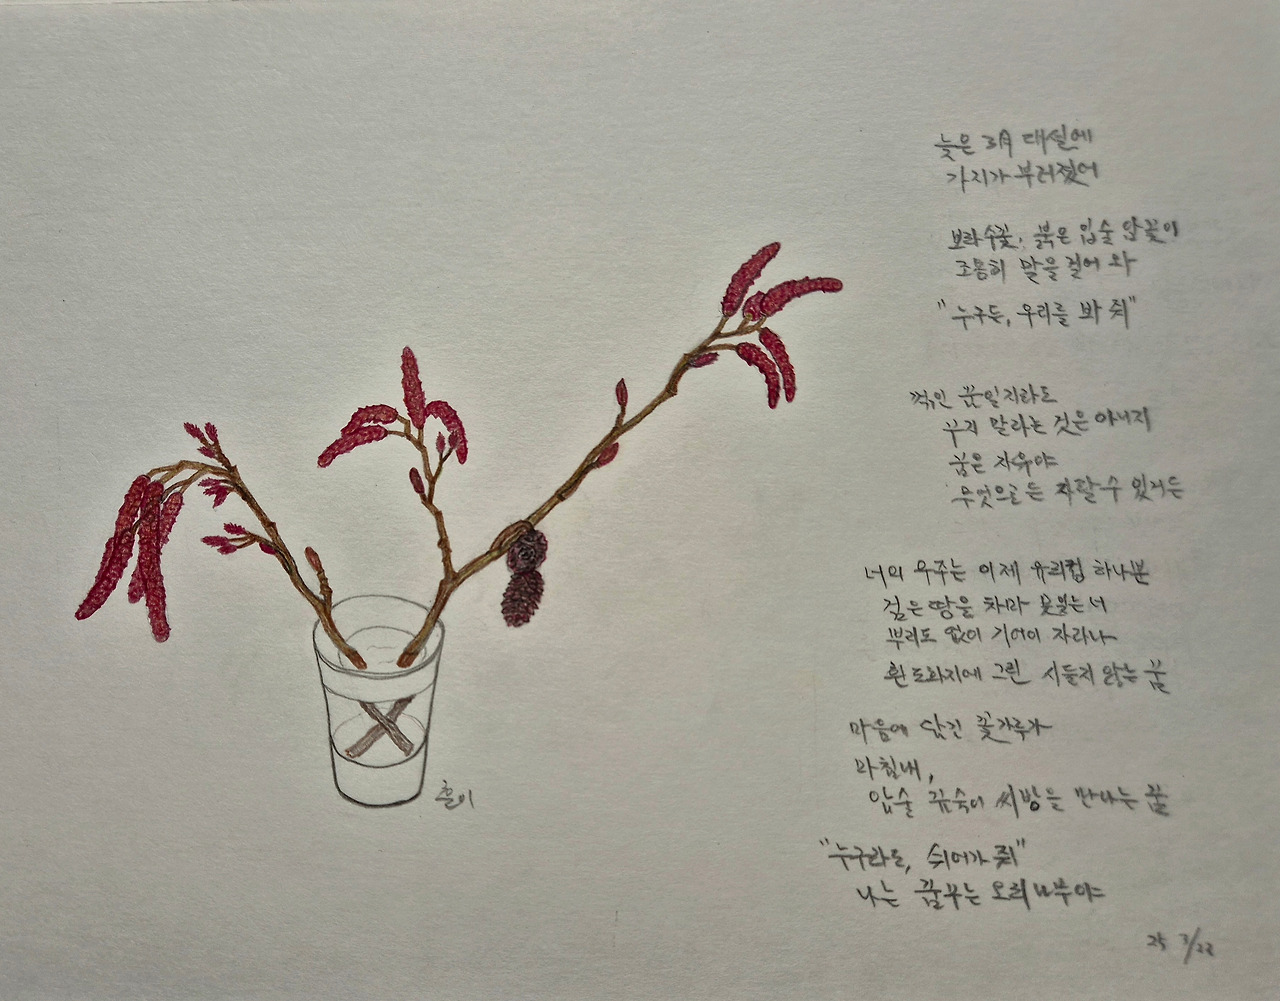 늦은 3月 대설에
가지가 부러졌어
보라 수꽃, 붉은 입술 암꽃이
조용히 말을 걸어 와
"누구든, 우리를 봐 줘"
꺾인 꿈일지라도
꾸지 말라는 것은 아니지
꿈은 자유야
무엇으로든 자랄 수 있거든
너의 우주는 이제 유리컵 하나뿐
검은 땅을 차마 못잊는 너
뿌리도 없이 기어이 자라나
흰 도화지에 그린 시들지 않는 꿈
마음에 담긴 꽃가루가
마침내,
암술 깊숙이 씨방을 만나는 꿈
"누구라도, 쉬어가 줘"
나는 꿈꾸는 오리나무야
훈이
25 3/22